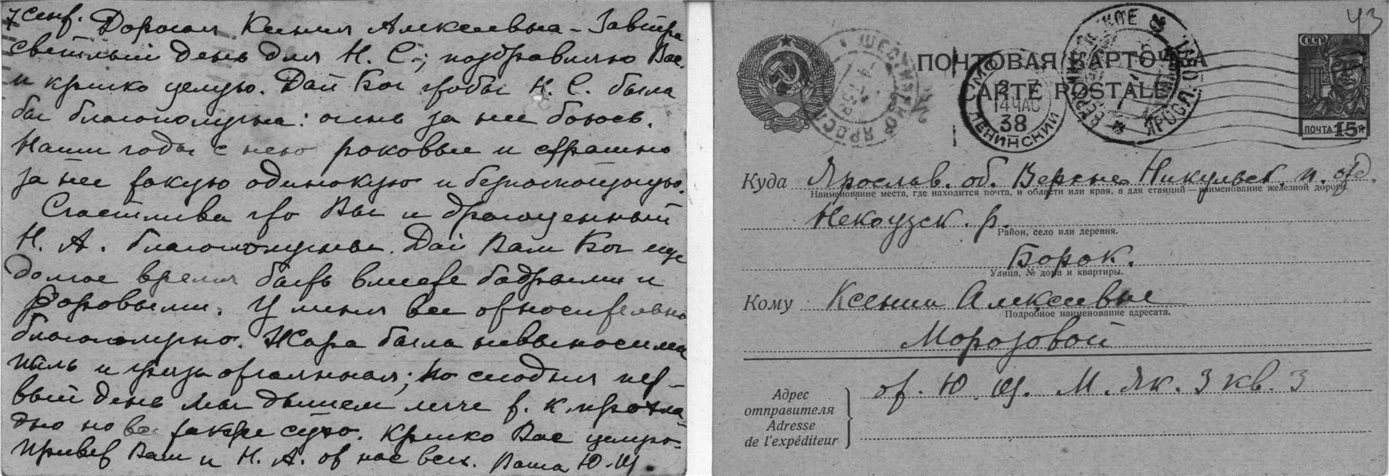 7 сент. Дорогая Ксения Алексеевна – Завтра
светлый день для Н. С.; поздравляю Вас
и крепко целую. Дай Бог чтобы Н. С. была
бы благополучна: очень за нее боюсь.
Наши годы с нею роковые и страшно
за нее такую одинокую и беспомощную.
Счастлива что Вы и драгоценный
Н. А. благополучны. Дай Вам Бог еще
долгое время быть вместе бодрыми и
здоровыми. У меня все относительно
благополучно. Жара была невыносимая
пыль и грязь отчаянная; но сегодня пер-
вый день мы дышем легче т. к. прохла
дно но все также сухо. Крепко Вас целую.
Привет Вам и Н. А. от нас всех. Ваша Ю. Щ.
43
ПОЧТОВАЯ КАРТОЧКА
CARTE POSTALE
СССР
ПОЧТА 15 к
14 ЧАС
38
ЛЕНИНСКИЙ
Куда Ярослав. об. Верхне Никульск. п. отд.
Наименование места, где находится почта, и области или края, а для станций – наименование железной дороги.
Некоузск. р.
Район, село или деревня.
Борок.
Улица, № дома и квартиры.
Кому Ксении Алексеевне
Подробное наименование адресата.
Морозовой
Адрес
отправителя
Adresse
de l'expéditeur
от. Ю. Щ. М. Як. 3 кв. 3